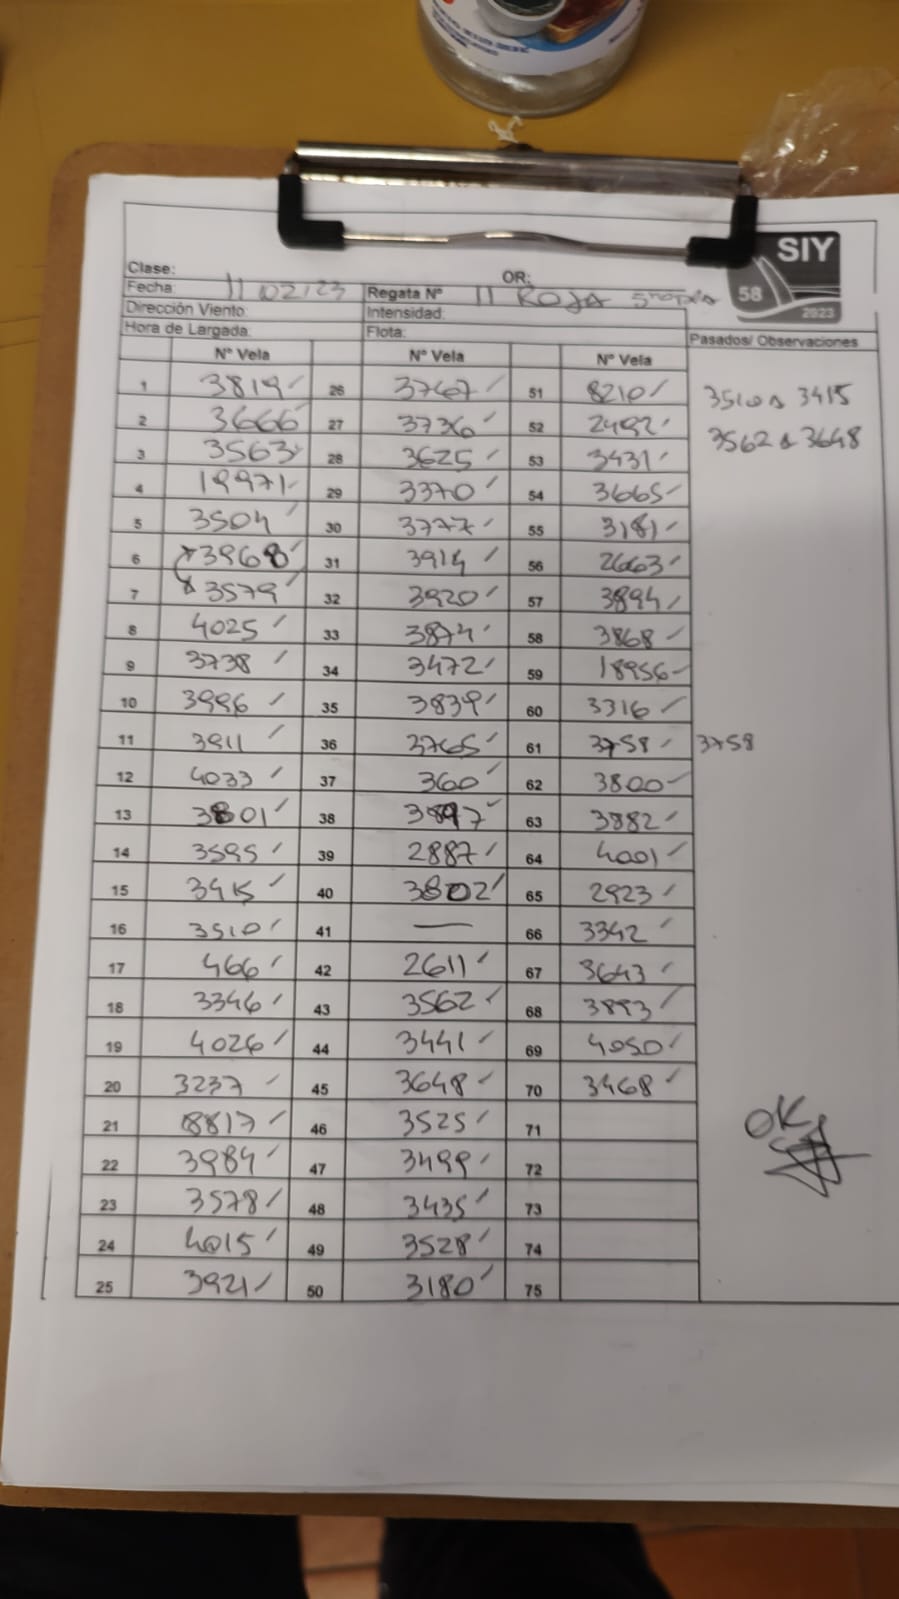 SIY
58
2023
Clase:
OR:
Fecha: 11 02/23
Regata Nº 11 ROJA
Dirección Viento:
Intensidad:
Hora de Largada:
Flota:
Pasados/ Observaciones
Nº Vela Nº Vela Nº Vela
1 3819 26 3767 51 8210
3510 a 3415
2 3666 27 3736 52 2492
3562 a 3648
3 3563 28 3625 53 3431
4 19971 29 3370 54 3665
5 3504 30 3777 55 3181
6 3968 31 3914 56 2663
7 3579 32 3920 57 3894
8 4025 33 3874 58 3868
9 3738 34 3472 59 18956
10 3996 35 3839 60 3316
11 3911 36 3765 61 3758 3758
12 4033 37 360 62 3800
13 3801 38 3897 63 3882
14 3595 39 2887 64 4001
15 3415 40 3802 65 2923
16 3510 41 — 66 3342
17 466 42 2611 67 3643
18 3346 43 3562 68 3893
19 4026 44 3441 69 4050
20 3237 45 3648 70 3468
21 8817 46 3525 71
OK
22 3984 47 3499 72
23 3578 48 3435 73
24 4015 49 3528 74
25 3921 50 3180 75